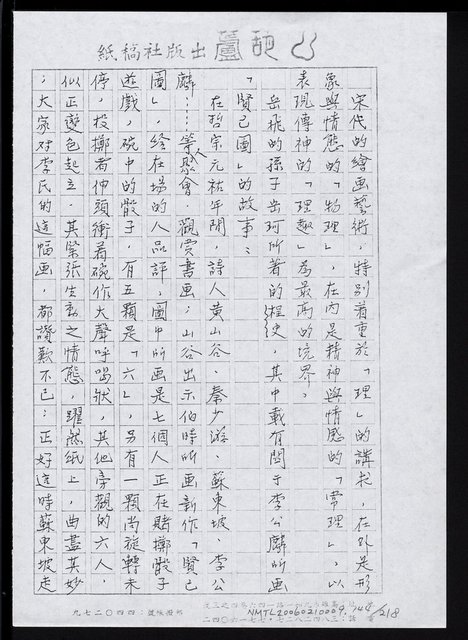 紙稿社版出蘆葫
宋代的繪画藝術，特別着重於「理」的講求，在外是形
象與情態的「物理」，在內是精神與情感的「常理」，以
表現傳神的「理趣」為最高的境界。
岳飛的孫子岳珂所著的桯史，其中載有関于李公麟所画
「賢己圖」的故事：
在哲宗元祐年間，詩人黃山谷、秦少游、蘇東坡、李公
麟……等人聚會，觀賞書画；山谷出示伯時所画新作「賢己
圖」，給在場的人品評；圖中所画是七個人正在賭擲骰子
遊戲，碗中的骰子，有五顆是「六」，另有一顆尚旋轉未
停，投擲者伸頭衝着碗作大聲呼喝狀，其他旁觀的六人，
似正變色起立，其緊張生動之情態，躍然紙上，曲盡其妙
；大家对李氏的這幅画，都讚歎不已：正好這時蘇東坡走
NMTL20060210009.148/218